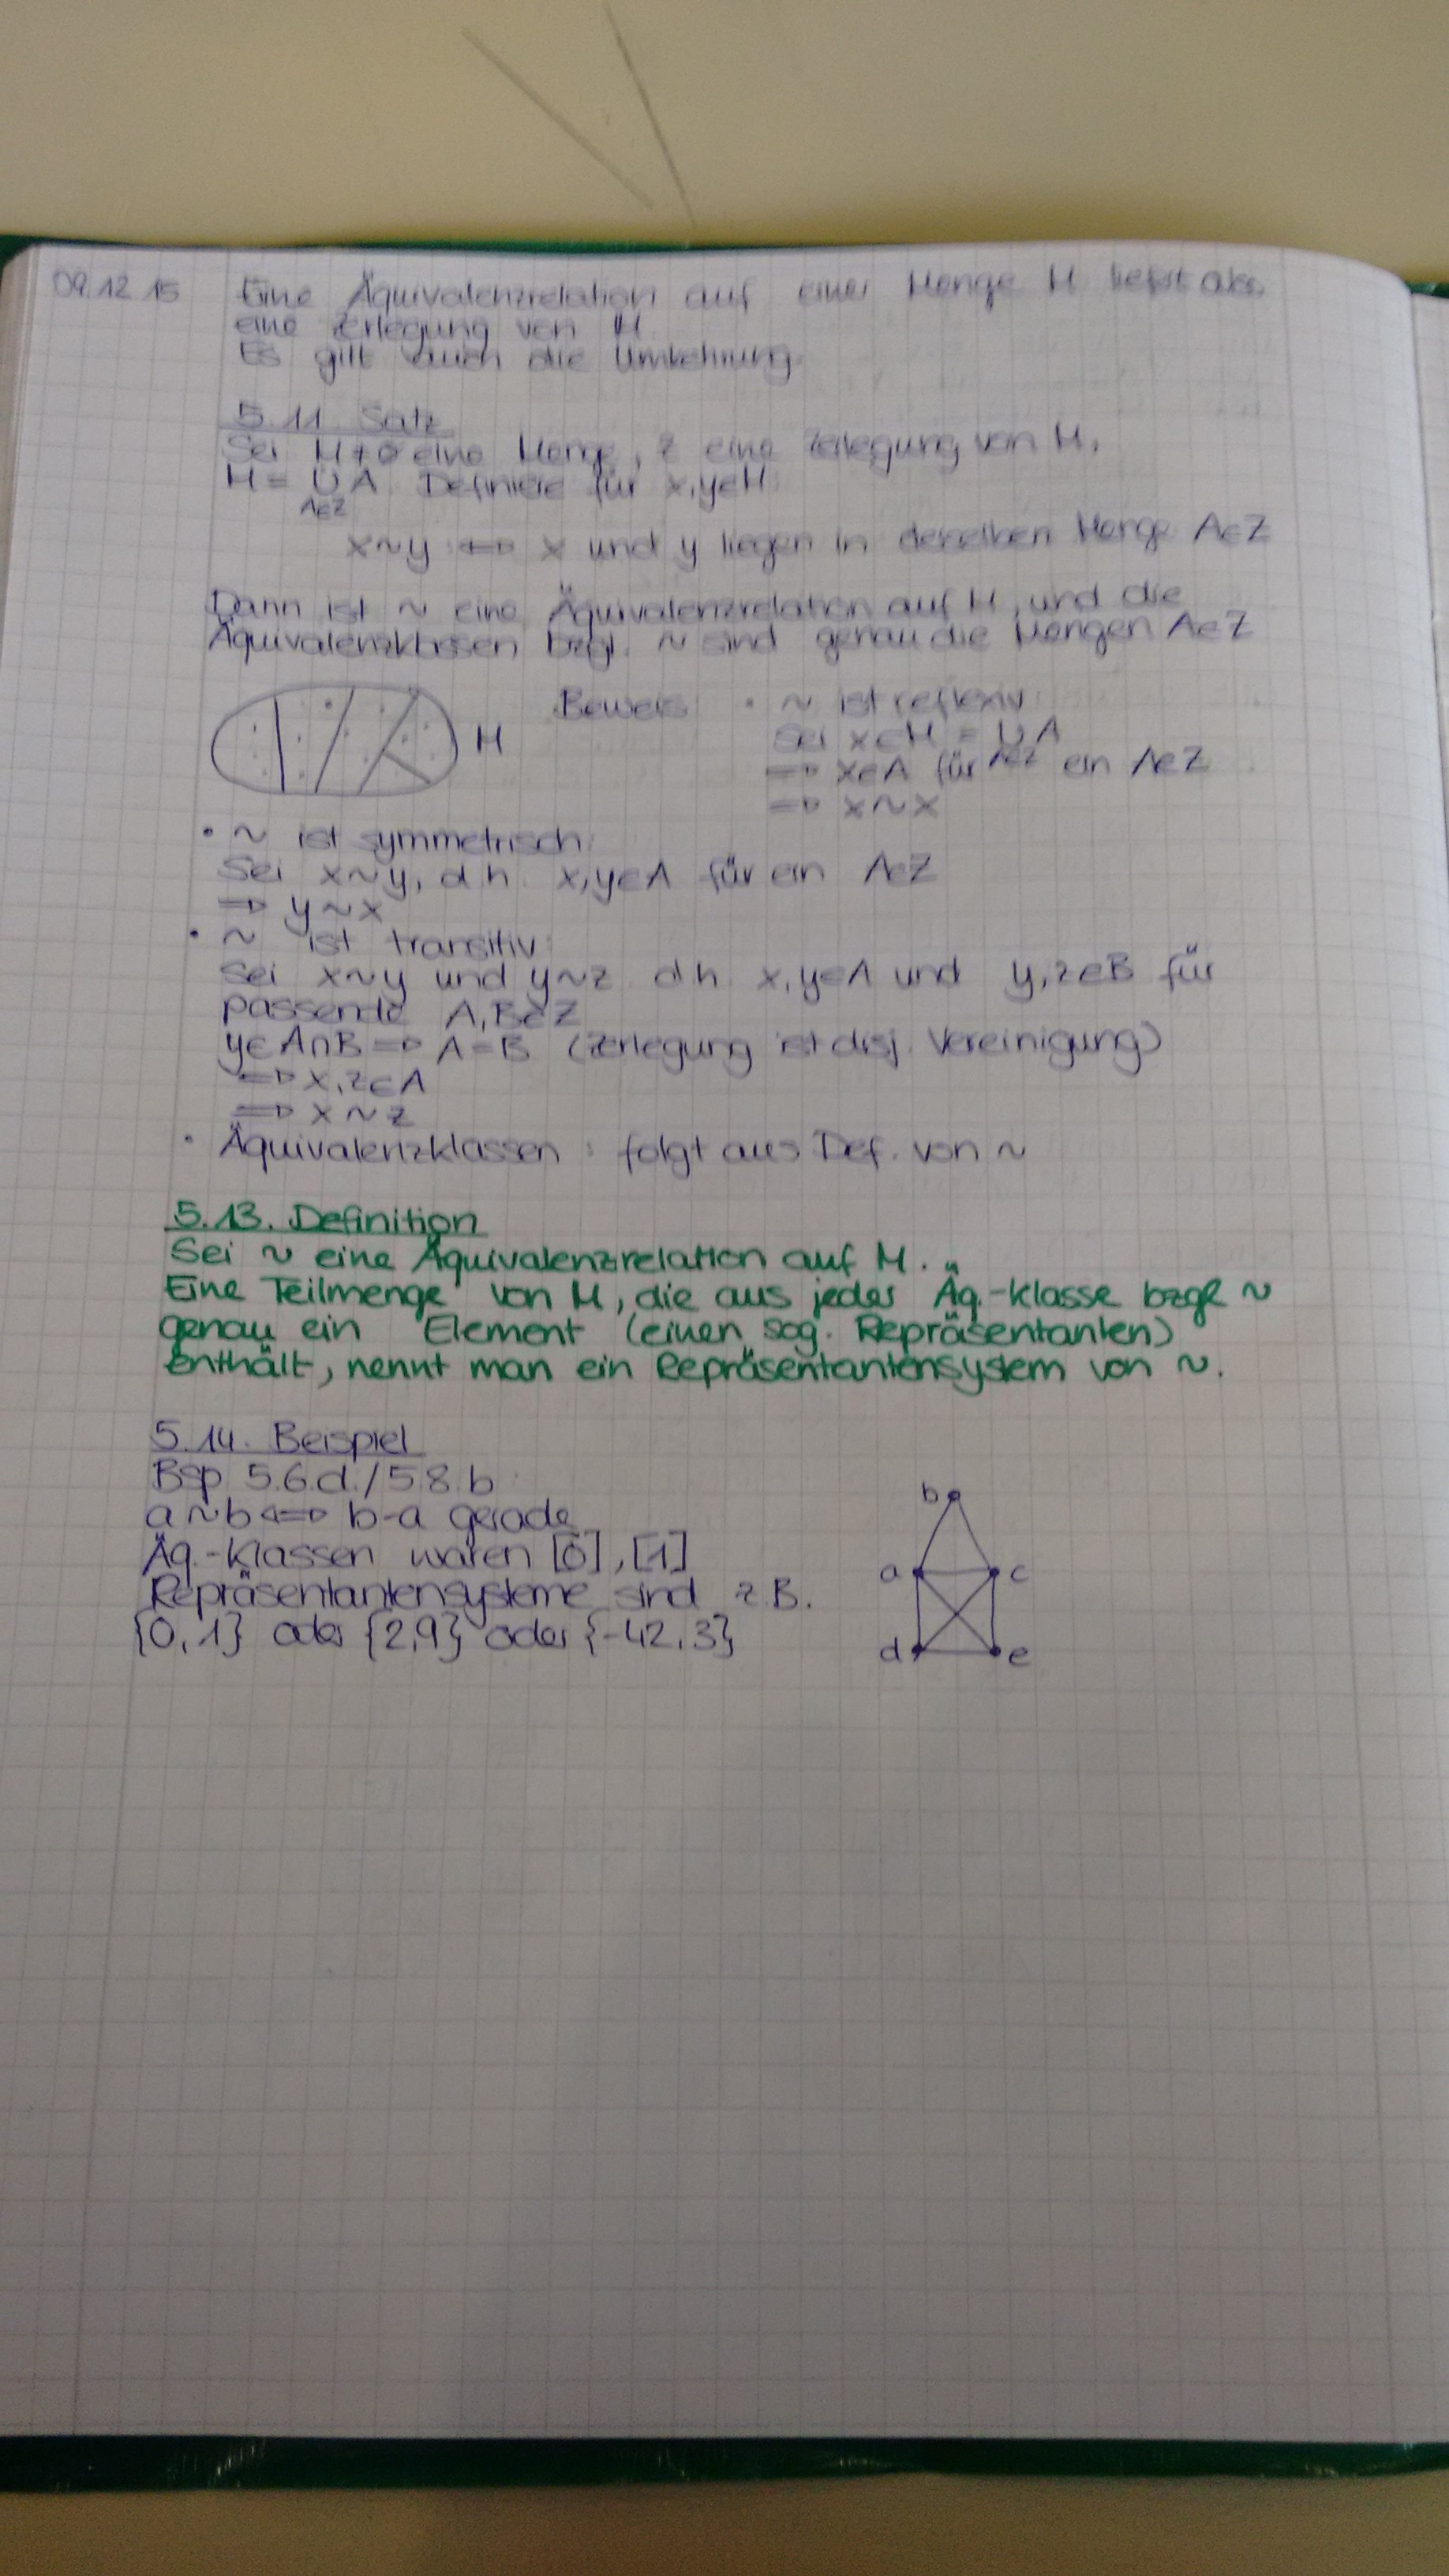 09.12.15 Eine Äquivalenzrelation auf einer Menge M liefert also
eine Zerlegung von M.
Es gilt auch die Umkehrung.
5.11. Satz
Sei M≠∅ eine Menge, Z eine Zerlegung von M,
M = ∪ A. Definiere für x,y∈M:
A∈Z
x~y ⇔ x und y liegen in derselben Menge A∈Z
Dann ist ~ eine Äquivalenzrelation auf M, und die
Äquivalenzklassen bzgl. ~ sind genau die Mengen A∈Z
M
Beweis: • ~ ist reflexiv:
Sei x∈M = ∪ A
A∈Z
⇒ x∈A für ein A∈Z
⇒ x~x
• ~ ist symmetrisch:
Sei x~y, d.h. x,y∈A für ein A∈Z
⇒ y~x
• ~ ist transitiv:
Sei x~y und y~z d.h. x,y∈A und y,z∈B für
passende A,B∈Z
y∈A∩B ⇒ A=B (Zerlegung ist disj. Vereinigung)
⇒ x,z∈A
⇒ x~z
• Äquivalenzklassen: folgt aus Def. von ~
5.13. Definition
Sei ~ eine Äquivalenzrelation auf M.
Eine Teilmenge von M, die aus jeder Äq.-Klasse bzgl ~
genau ein Element (einen sog. Repräsentanten)
enthält, nennt man ein Repräsentantensystem von ~.
5.14. Beispiel
Bsp 5.6.d./5.8.b
a~b ⇔ b-a gerade
Äq.-Klassen waren [0],[1]
Repräsentantensysteme sind z.B.
{0,1} oder {2,9} oder {-42,3}
b
a c
d e